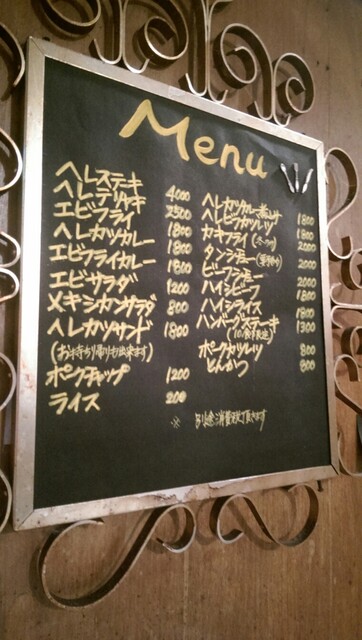 Menu
ヘレステーキ 4000
ヘレテリヤキ 2500
エビフライ 1800
ヘレカツカレー 1800
エビフライカレー 1800
エビサラダ 1200
メキシカンサラダ 800
ヘレカツサンド 1800
(お土持ち帰りも出来ます)
ポークチャップ 1200
ライス 200
ヘレカツカレー 1800
ヘレビフカツレツ 1800
カキフライ 2000
タンシチュー 2000
ビーフシチュー 2000
ハイシビーフ 1800
ハイシライス 1800
ハンバーグステーキ 1300
(10食限定)
ポークカツレツ 800
とんかつ 800
※ 別途消費税丁頂きます